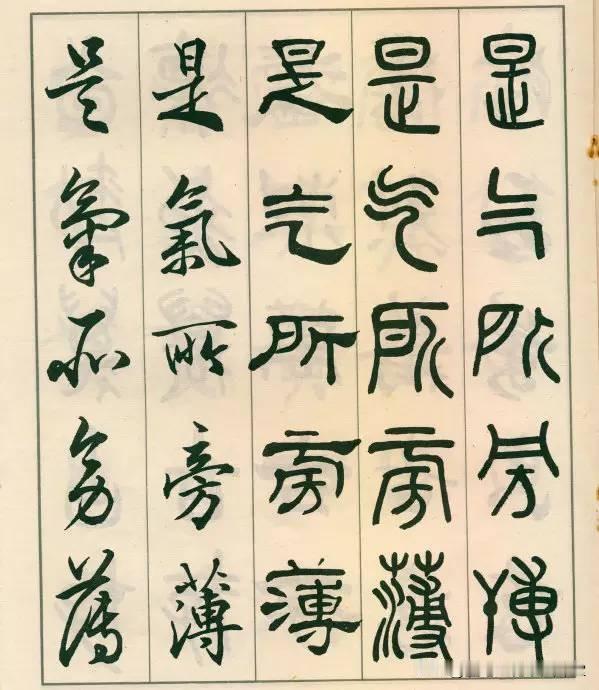 是气所旁薄
是气所旁薄
是气所旁薄
是氣所旁薄
是氣所旁薄